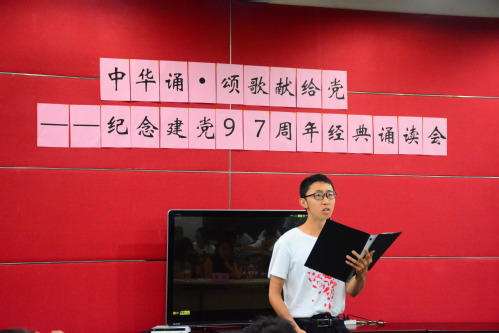 中华诵·颂歌献给党
——纪念建党97周年经典诵读会